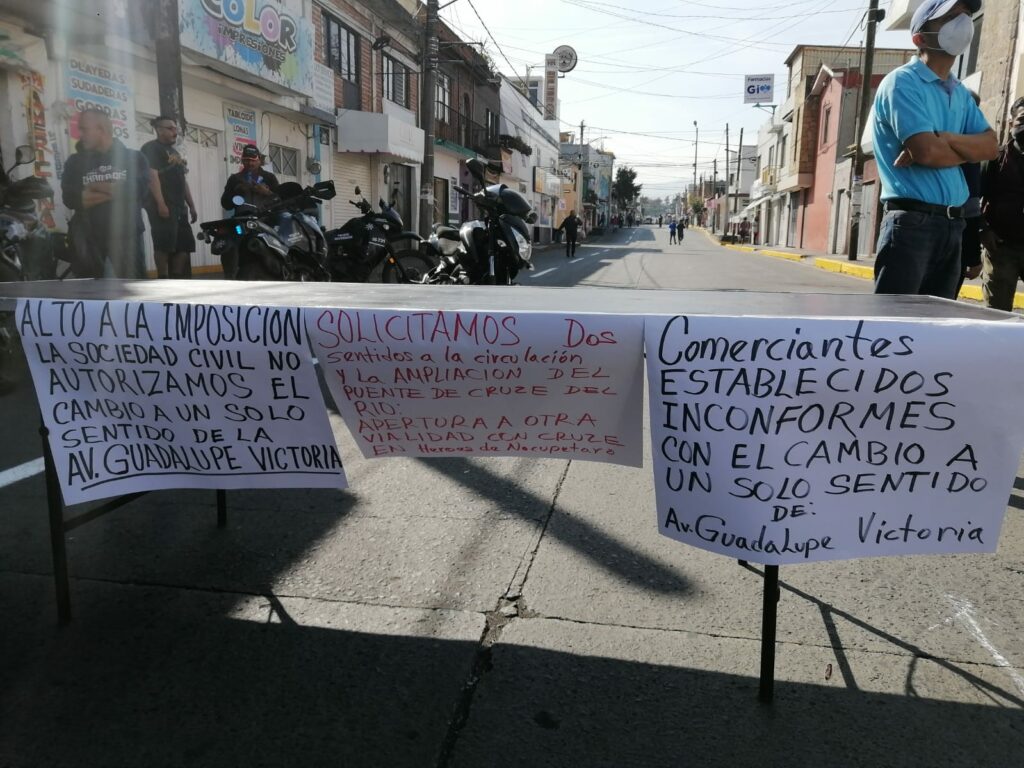 COLOR
IMPRESIONES
PLAYERAS
SUDADERAS
GORRAS
TABLOIDE
LONAS
Farmacias
Gi
ALTO A LA IMPOSICION
LA SOCIEDAD CIVIL NO
AUTORIZAMOS EL
CAMBIO A UN SOLO
SENTIDO DE LA
AV. GUADALUPE VICTORIA
SOLICITAMOS Dos
sentidos a la circulación
y LA AMPLIACION DEL
PUENTE DE CRUZE DEL
RIO:
APERTURA A OTRA
VIALIDAD CON CRUZE
EN Heroes de Nocupetaro
Comerciantes
ESTABLECIDOS
INCONFORMES
CON EL CAMBIO A
UN SOLO SENTIDO
DE:
Av. Guadalupe Victoria